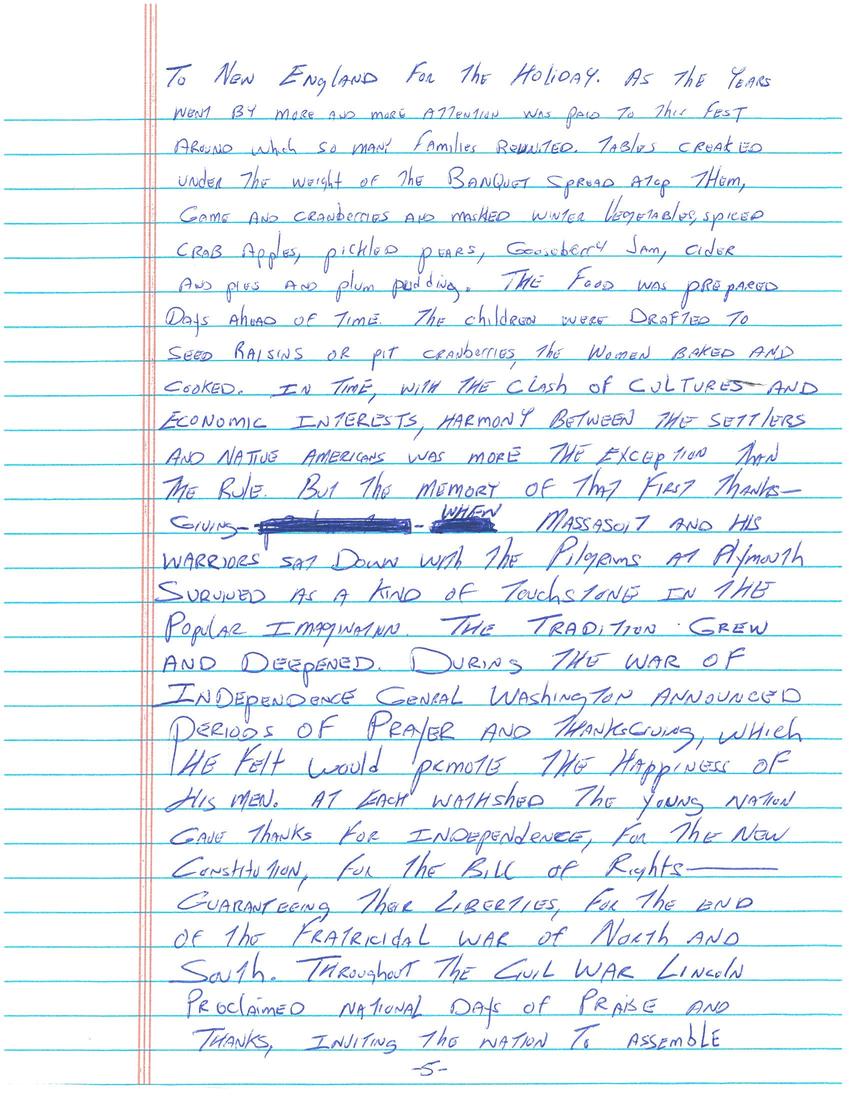 To New England For The Holiday. As The Years
went by more and more attention was paid to this fest
around which so many families reunited. Tables creaked
under the weight of the Banquet spread atop them,
Game and cranberries and mashed winter vegetables, spiced
crab apples, pickled pears, Gooseberry Jam, cider
and pies and plum pudding. The Food was prepared
Days ahead of time. The children were drafted to
seed raisins or pit cranberries, the women baked and
cooked. In time, with the clash of cultures and
economic interests, harmony between the settlers
and Native Americans was more the exception than
the rule. But the memory of that first Thanks-
Giving- - when Massasoit and his
warriors sat down with the Pilgrims at Plymouth
Survived as a kind of touchstone in the
Popular Imagination. The Tradition Grew
and Deepened. During the War of
Independence Genral Washington announced
periods of Prayer and Thanksgiving, which
he felt would prmote the Happiness of
his men. At each wathshed the young nation
Gave thanks for Independence, for the New
Constitution, for the Bill of Rights—
Guaranteeing their liberties, for the end
of the Fratricidal war of North and
South. Throughout the Civil War Lincoln
Proclaimed national days of praise and
Thanks, inviting the nation to assemble
-5-